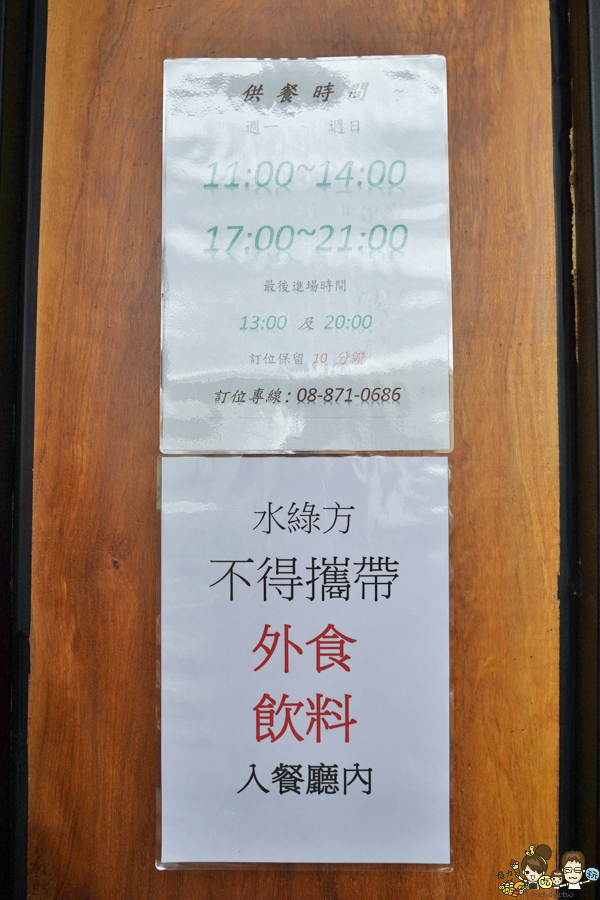 供餐時間
週一 ~ 週日
11:00~14:00
17:00~21:00
最後進場時間
13:00 及 20:00
訂位保留 10 分鐘
訂位專線：08-871-0686
水綠方
不得攜帶
外食
飲料
入餐廳內